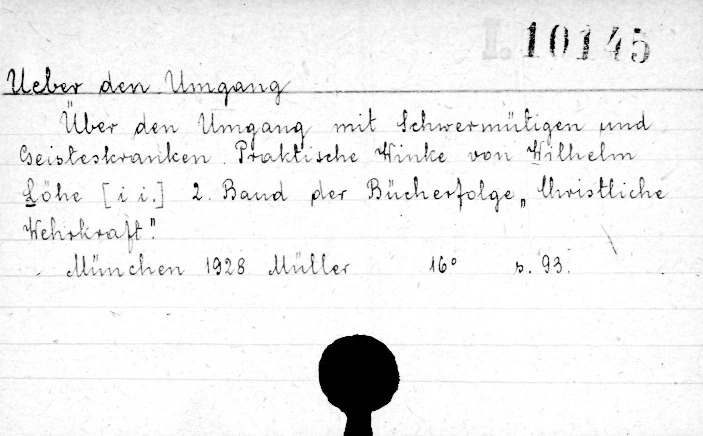 I. 10145
Ueber den Umgang
Über den Umgang mit Schwermütigen und
Geisteskranken. Praktische Winke von Wilhelm
Löhe [i i.] 2. Band der Bücherfolge „Christliche
Wehrkraft".
München 1928 Müller 16° s. 93.